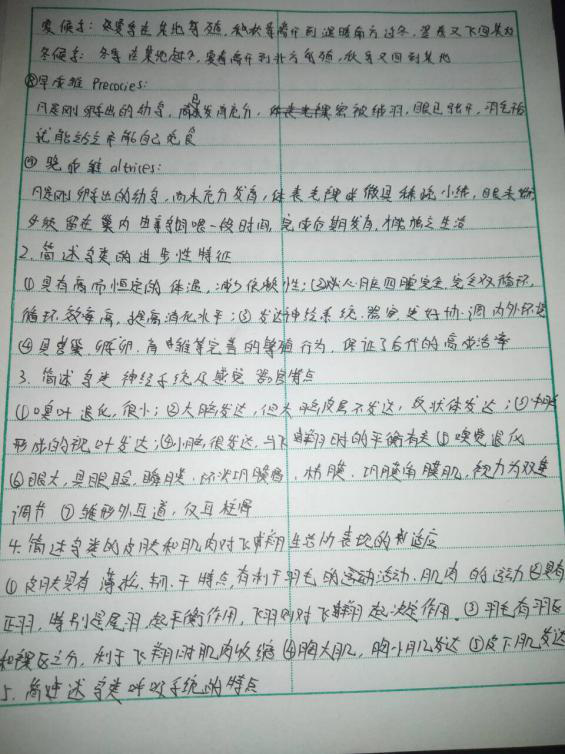 夏候鸟: 冬季鸟在某地繁殖, 秋季离开到温暖南方过冬, 翌春又飞回某地
冬候鸟: 冬季在某地越冬, 夏季离开到北方繁殖, 秋季又回到某地
③早成雏 Precocies:
凡是刚孵出的幼鸟, 发育充分, 密被绒羽, 眼已张开, 羽毛
就能站立并能自己觅食
④ 晚成雏 altrices:
凡是刚孵出的幼鸟, 尚未充分发育, 体表光裸或微具稀疏小绒, 眼未
必须留在巢内由亲鸟饲喂一段时间, 完成后期发育, 才能独立生活
2. 简述鸟类的进步性特征
①具有高而恒定的体温, 减少依赖性; ②心脏四腔完全, 完全双循环,
循环效率高, 提高消化水平; ③发达神经系统、器官更好协调内外环境
④具营巢、孵卵、育雏等完善的繁殖行为, 保证了后代的高成活率
3. 简述鸟类神经系统及感觉器官特点
①嗅叶退化, 很小; ②大脑发达, 但大脑皮层不发达, 纹状体发达; ③中脑
形成的视叶发达; ④小脑很发达, 与飞翔时的平衡有关 ⑤嗅觉退化
⑥眼大, 具眼睑、瞬膜、环状巩膜骨、栉膜、巩膜角膜肌, 视力为双重
调节 ⑦雏形外耳道, 仅耳柱骨
4. 简述鸟类的皮肤和肌肉对飞翔生活的表现的适应
① 皮肤具有薄、松、韧、干特点, 有利于羽毛的运动活动、肌肉的运动 ②具有
正羽, 特别是尾羽起平衡作用, 飞羽则对飞翔起决定作用. ③ 羽毛有羽区
和裸区之分, 利于飞翔时肌肉收缩 ④胸大肌, 胸小肌发达 ⑤皮下肌发达
5. 简述鸟类呼吸系统的特点